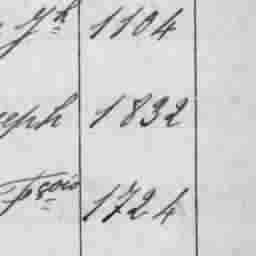 Jh 1104
seph 1832
Fçois 1724